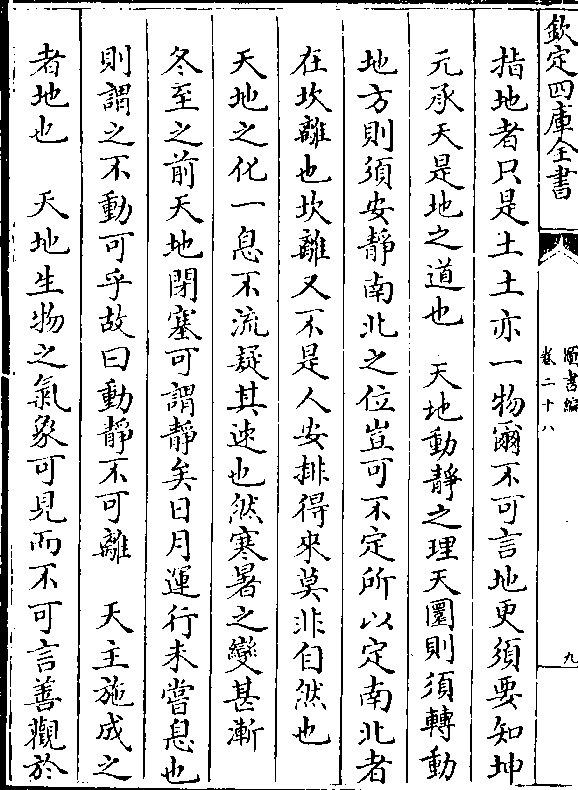 欽定四庫全書
圖書編
卷二十八
九
指地者只是土土亦一物爾不可言地更須要知坤
元承天是地之道也　天地動靜之理天圜則須轉動
地方則須安靜南北之位豈可不定所以定南北者
在坎離也坎離又不是人安排得來莫非自然也
天地之化一息不流疑其速也然寒暑之變甚漸
冬至之前天地閉塞可謂靜矣日月運行未嘗息也
則謂之不動可乎故曰動靜不可離　天主施成之
者地也　天地生物之氣象可見而不可言善觀於